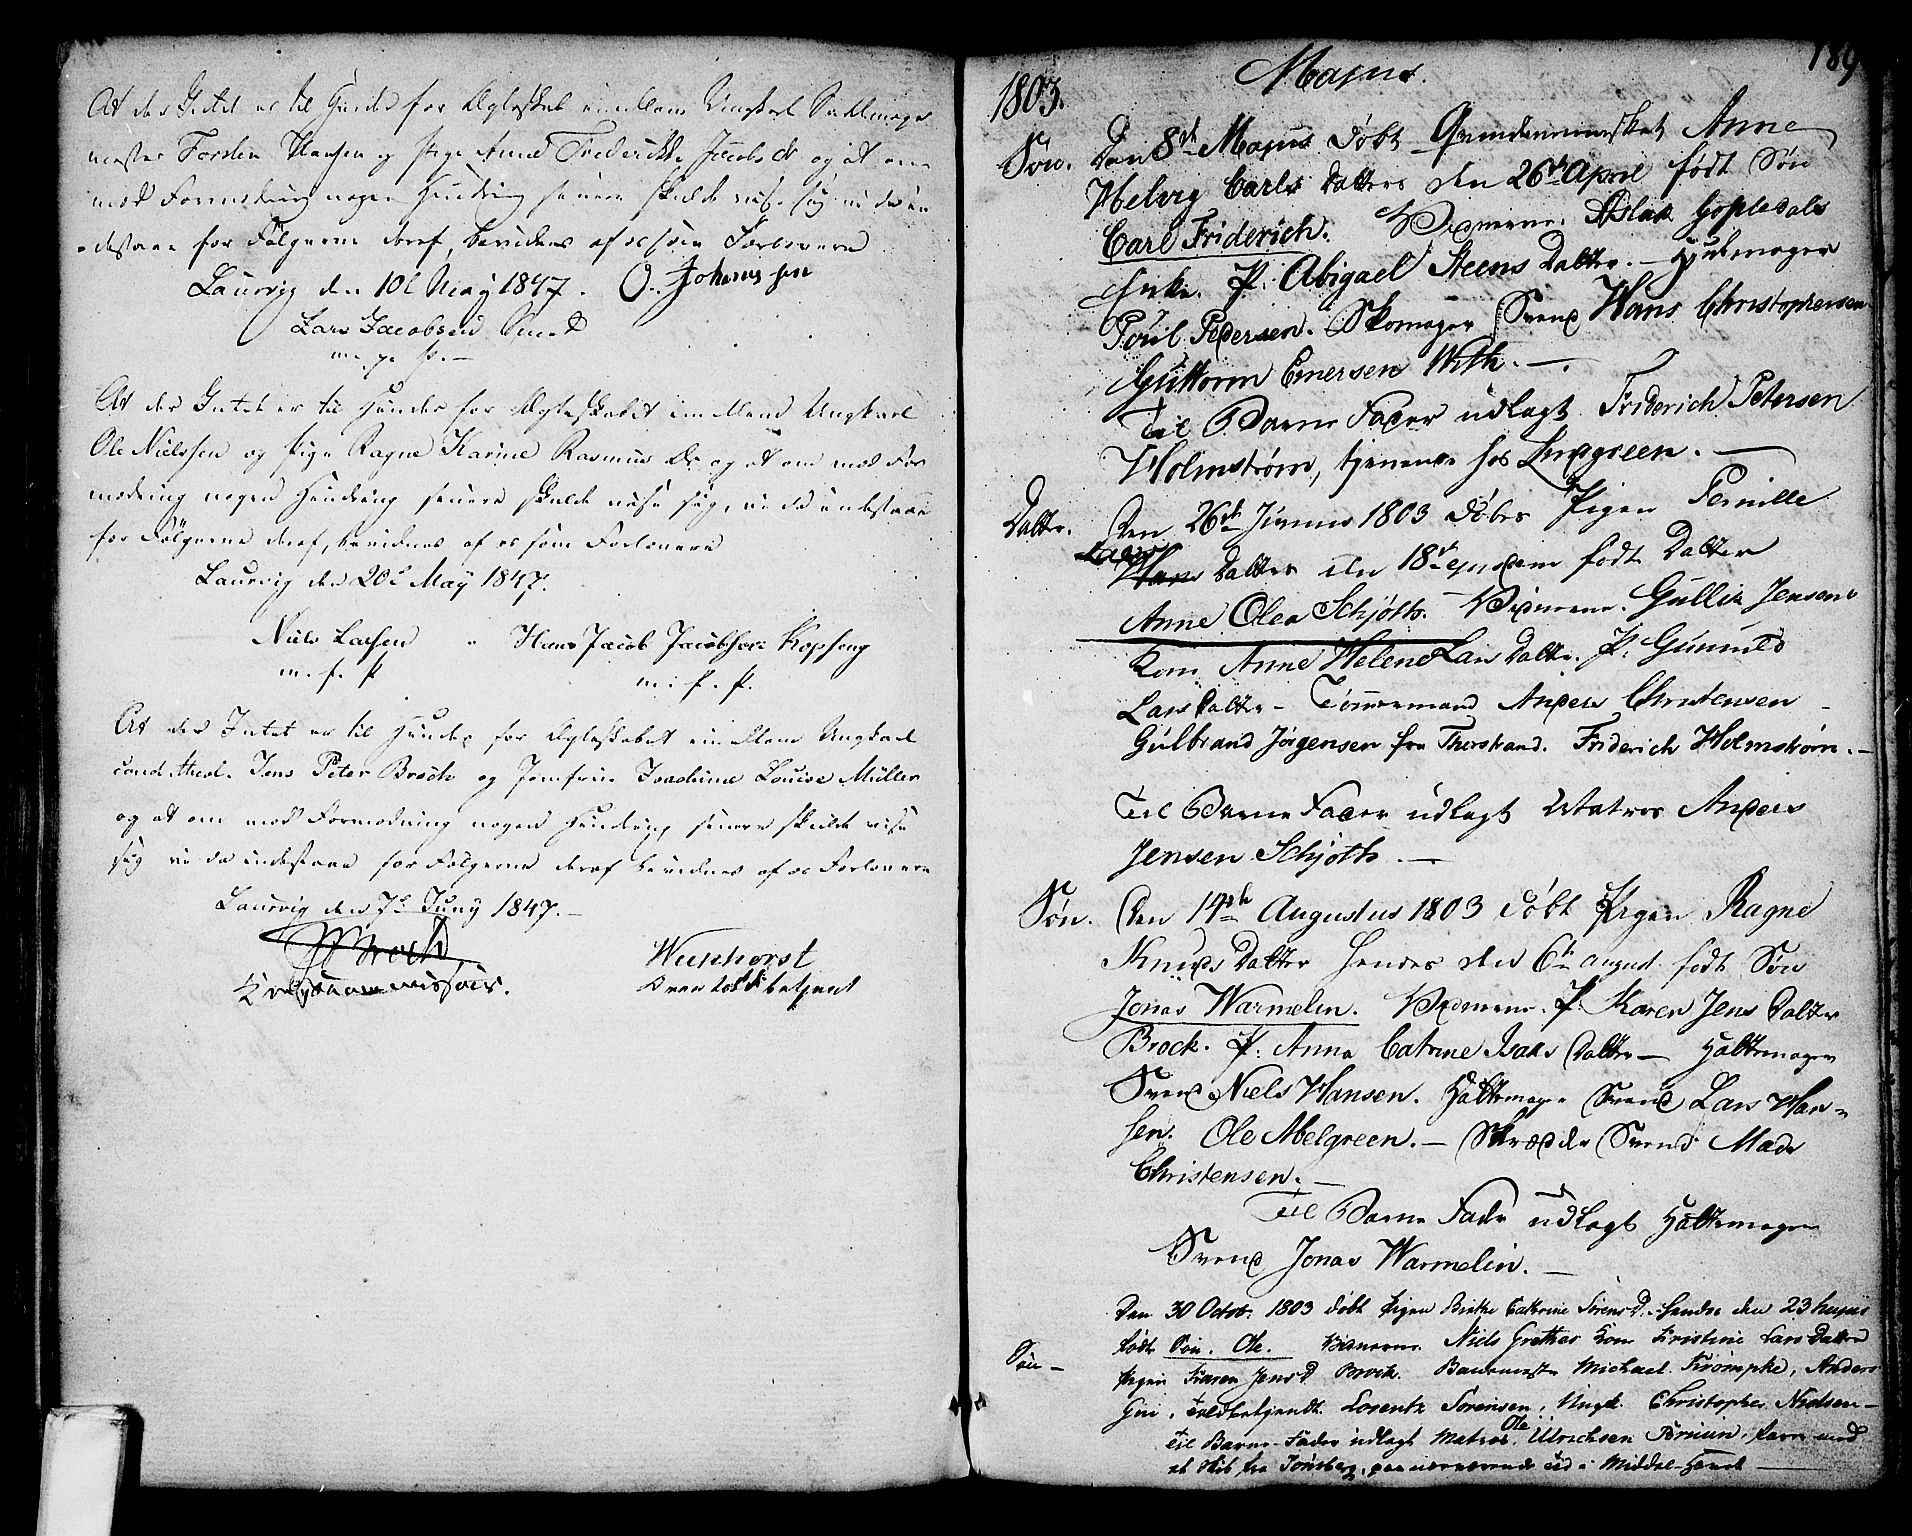 At der Intet er til Hinder for Ægteskab imellem Ungkarl Sadelmager
mester Torsten Hansen og Pige Anne Frederikke Jacobs dr og at om
mod Formodning nogen Hindring senere skulde vise sig, vi da in
destaae for Følgerne deraf, bevidnes af os som Forlovere
Laurvig den 10d May 1847. O. Johannessen
Lars Jacobsen
m. p. P.
At der Intet er til Hinder for Ægteskabet imellem Ungkarl
Ole Nielsen og Pige Ragne Karine Rasmus Dr og at om mod For
modning nogen Hindring senere skulde vise sig, vi da indestaae
for Følgerne deraf, bevidnes af os som Forlovere
Laurvig den 20d May 1847.
Niels Larsen Hans Jacob Jacobsen
m. f. P. m. f. P.
At der Intet er til Hinder for Ægteskabet imellem Ungkarl
cand. theol. Jens Peter Broch og Jomfrue Joachime Louise Müller
og at om mod Formodning nogen Hindring senere skulde vise
sig vi da indestaae for Følgerne deraf bevidnes af os Forlovere
Laurvig den 7d Juny 1847.
Broch Wephorst
189
1803. Majus.
Søn. Den 8de Majus døbt Qvindemennesket Anne
Helvig Carls Datters den 26de April født Søn
Carl Friderich. Vidnerne. Aslak Gopledals
Enke. P: Abigael Steens Datter. - Hjulmager
Poul Pedersen. Skomager Svend Hans Christophersen
Guttorm Enersen With. -
Til Barne Fader udlagt Friderich Petersen
Holmstrøm, tjenende hos Lindgreen. -
Datter. Den 26de Junius 1803 døbt Pigen Pernille
Lars
Hans Datter den 18de ejusdem født Datter
Anne Olea Schjøth. Vidnerne. Gullik Jensens
Kone Anne Helene Lars Datter. P: Gunnild
Lars Datter - Tømmermand Anders Christensen -
Gulbrand Jørgensen fra Thorstrand. Friderich Holmstrøm. -
Til Barne Fader udlagt Matros Anders
Jensen Schjøth. -
Søn. Den 14de Augustus 1803 døbt Pigen Ragne
Knuds Datter hendes den 6te august. født Søn
Jonas Warmelin. Vidnerne. P: Karen Jens Datter
Brock. P: Anna Catrine Isaks Datter - Hattemager
Svend Niels Hansen. Hattemager Svend Lars Han-
sen. Ole Melgreen. - Skræder Svend Mads
Christensen. -
Til Barne Fader udlagt Hattemager
Svend Jonas Warmelin. -
Den 30 Octob. 1803 døbt Pigen Birthe Cathrine Sørens D. hendes den 23 hujus
Søn - født Søn. Ole. Vidnerne. Niels Grethes Kone Kristine Lars Datter
Pigen Karen Jens D Brock. Michael Krømpke, Anders
Toldbetjendt Lorentz Sørensen, Ungk. Christopher Nielsen -
Ole
Til Barne-Fader udlagt Matros Ulrichsen farer med
et Skib fra Tønsberg, paa nærværende Tid i Middel-Havet